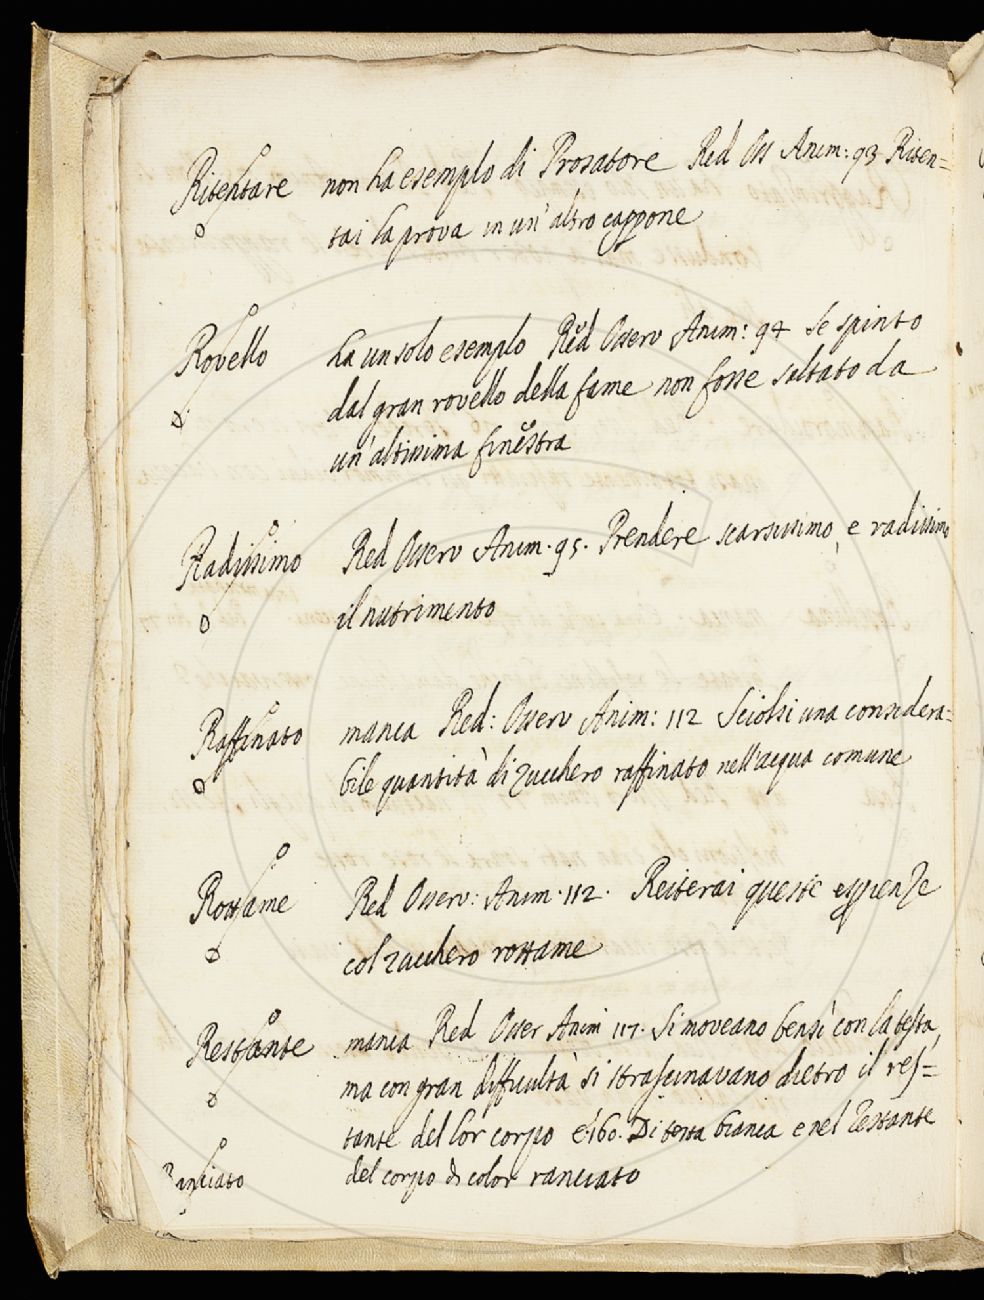 Ritentare non ha esempio di Prosatore Red Oss Anim: 93 Riten=
tai la prova in un'altro cappone
Rovello ha un solo esempio Red Osserv Anim: 94 Se spinto
dal gran rovello della fame non fosse saltato da
un'altissima finestra
Radissimo Red Osserv Anim. 95. Prendere scarsissimo, e radissimo
il nutrimento
Raffinato manca Red: Osserv Anim: 112 Sciolsi una considera=
bile quantità di zucchero raffinato nell'acqua comune
Rottame Red Osserv: Anim. 112. Reiterai queste esperienze
col zucchero rottame
Restante manca Red Osser Anim 117. Si moveano bensì con la testa,
ma con gran difficultà si strascinavano dietro il res=
tante del lor corpo e 160. Di testa bianca e nel restante
Ranciato del corpo di color ranciato